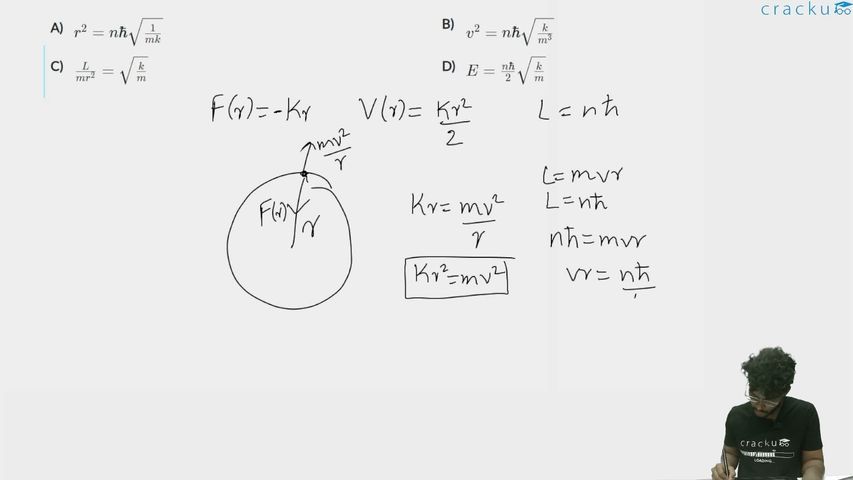 cracku
A) r² = nℏ√(1/mk)
B) v² = nℏ√(k/m³)
C) L/mr² = √(k/m)
D) E = nℏ/2 √(k/m)
F(r) = -Kr V(r) = Kr²/2 L = nℏ
mv²/r
F(r) r
Kr = mv²/r
Kr² = mv²
L = mvr
L = nℏ
nℏ = mvr
vr = nℏ/
cracku
LOADING...